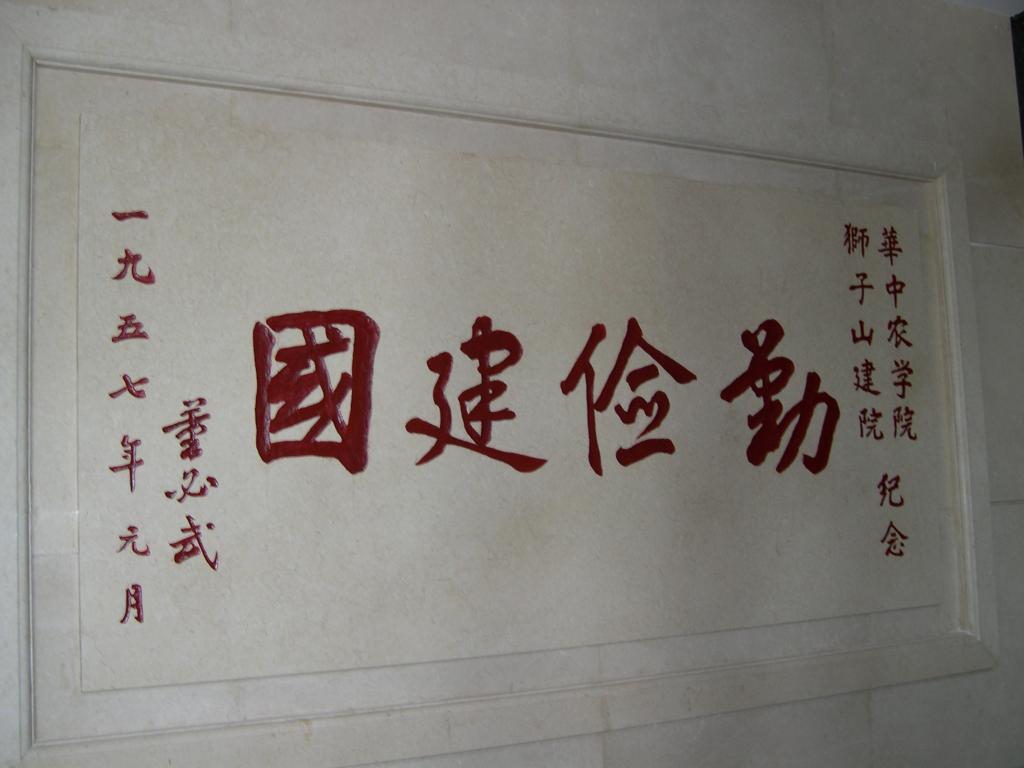 華中农学院 纪念
獅子山建院
勤儉建國
董必武
一九五七年元月